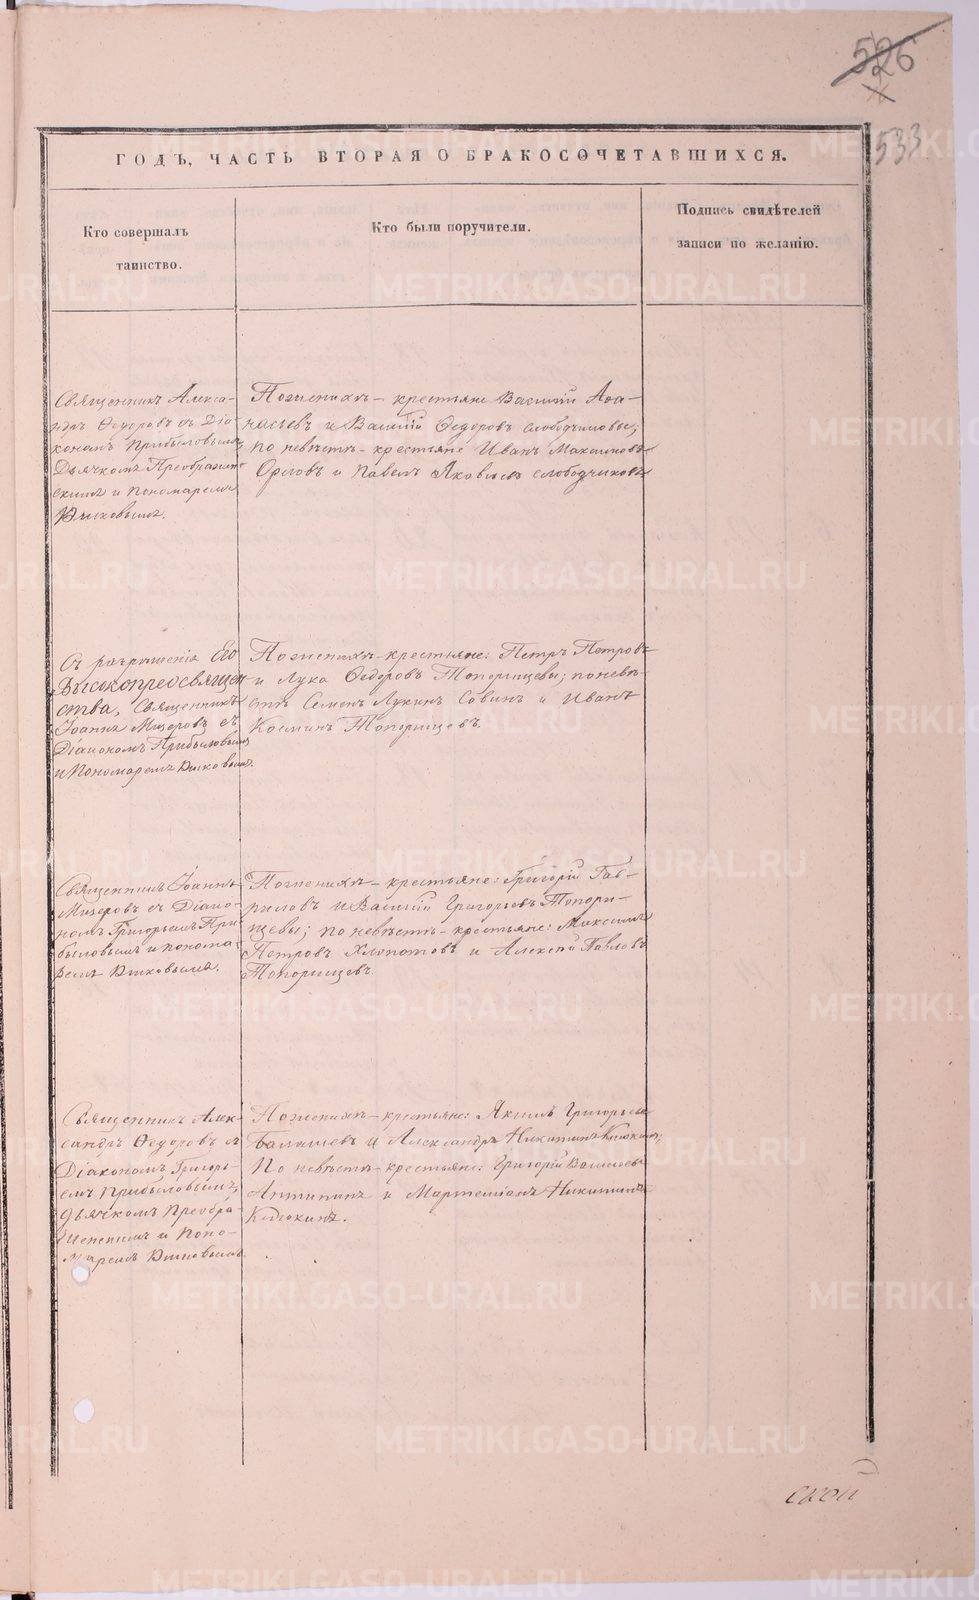 526
533
ГОДЪ, ЧАСТЬ ВТОРАЯ О БРАКОСОЧЕТАВШИХСЯ.
Кто совершалъ
таинство.
Кто были поручители.
Подпись свидѣтелей
записи по желанію.
Священникъ Алекса-
ндръ Ѳедоровъ съ Діа-
кономъ Прибыловымъ
Дьячкомъ Преображен-
скимъ и пономаремъ
По женихѣ – крестьяне Василій Аѳа-
насьевъ и Василій Ѳедоровъ Слободчиковы;
по невѣстѣ – крестьяне Иванъ Максимовъ
Орловъ и Павелъ Яковлевъ Слободчиковъ
Съ разрѣшенія Его
Высокопреосвящен
ства, Священникъ
Іоаннъ Мизеровъ съ
Діакономъ Прибыловымъ
и Пономаремъ
По женихѣ – крестьяне: Петръ Петровъ
и Лука Ѳедоровъ Топорищевы; по невѣ-
стѣ Семенъ Лукинъ Савинъ и Иванъ
Косминъ Топорищевъ.
Священникъ Іоаннъ
Мизеровъ съ Діако-
номъ Григорьемъ При-
быловымъ и понома-
ремъ
По женихѣ – крестьяне: Григорій Гав-
риловъ и Василій Григорьевъ Топори-
щевы; по невѣстѣ – крестьяне: Максимъ
Петровъ Хлопотовъ и Алексѣй Павловъ
Топорищевъ
Священникъ Алек-
сандръ Ѳедоровъ съ
Діакономъ Григорь-
емъ Прибыловымъ,
дьячкомъ Преобра-
женскимъ и Поно-
маремъ
По женихѣ – крестьяне: Якимъ Григорьевъ
и Александръ Никитинъ
По невѣстѣ – крестьяне: Григорій Васильевъ
Антипинъ и Мартемьянъ Никитинъ
ской
METRIKI.GASO-URAL.RU